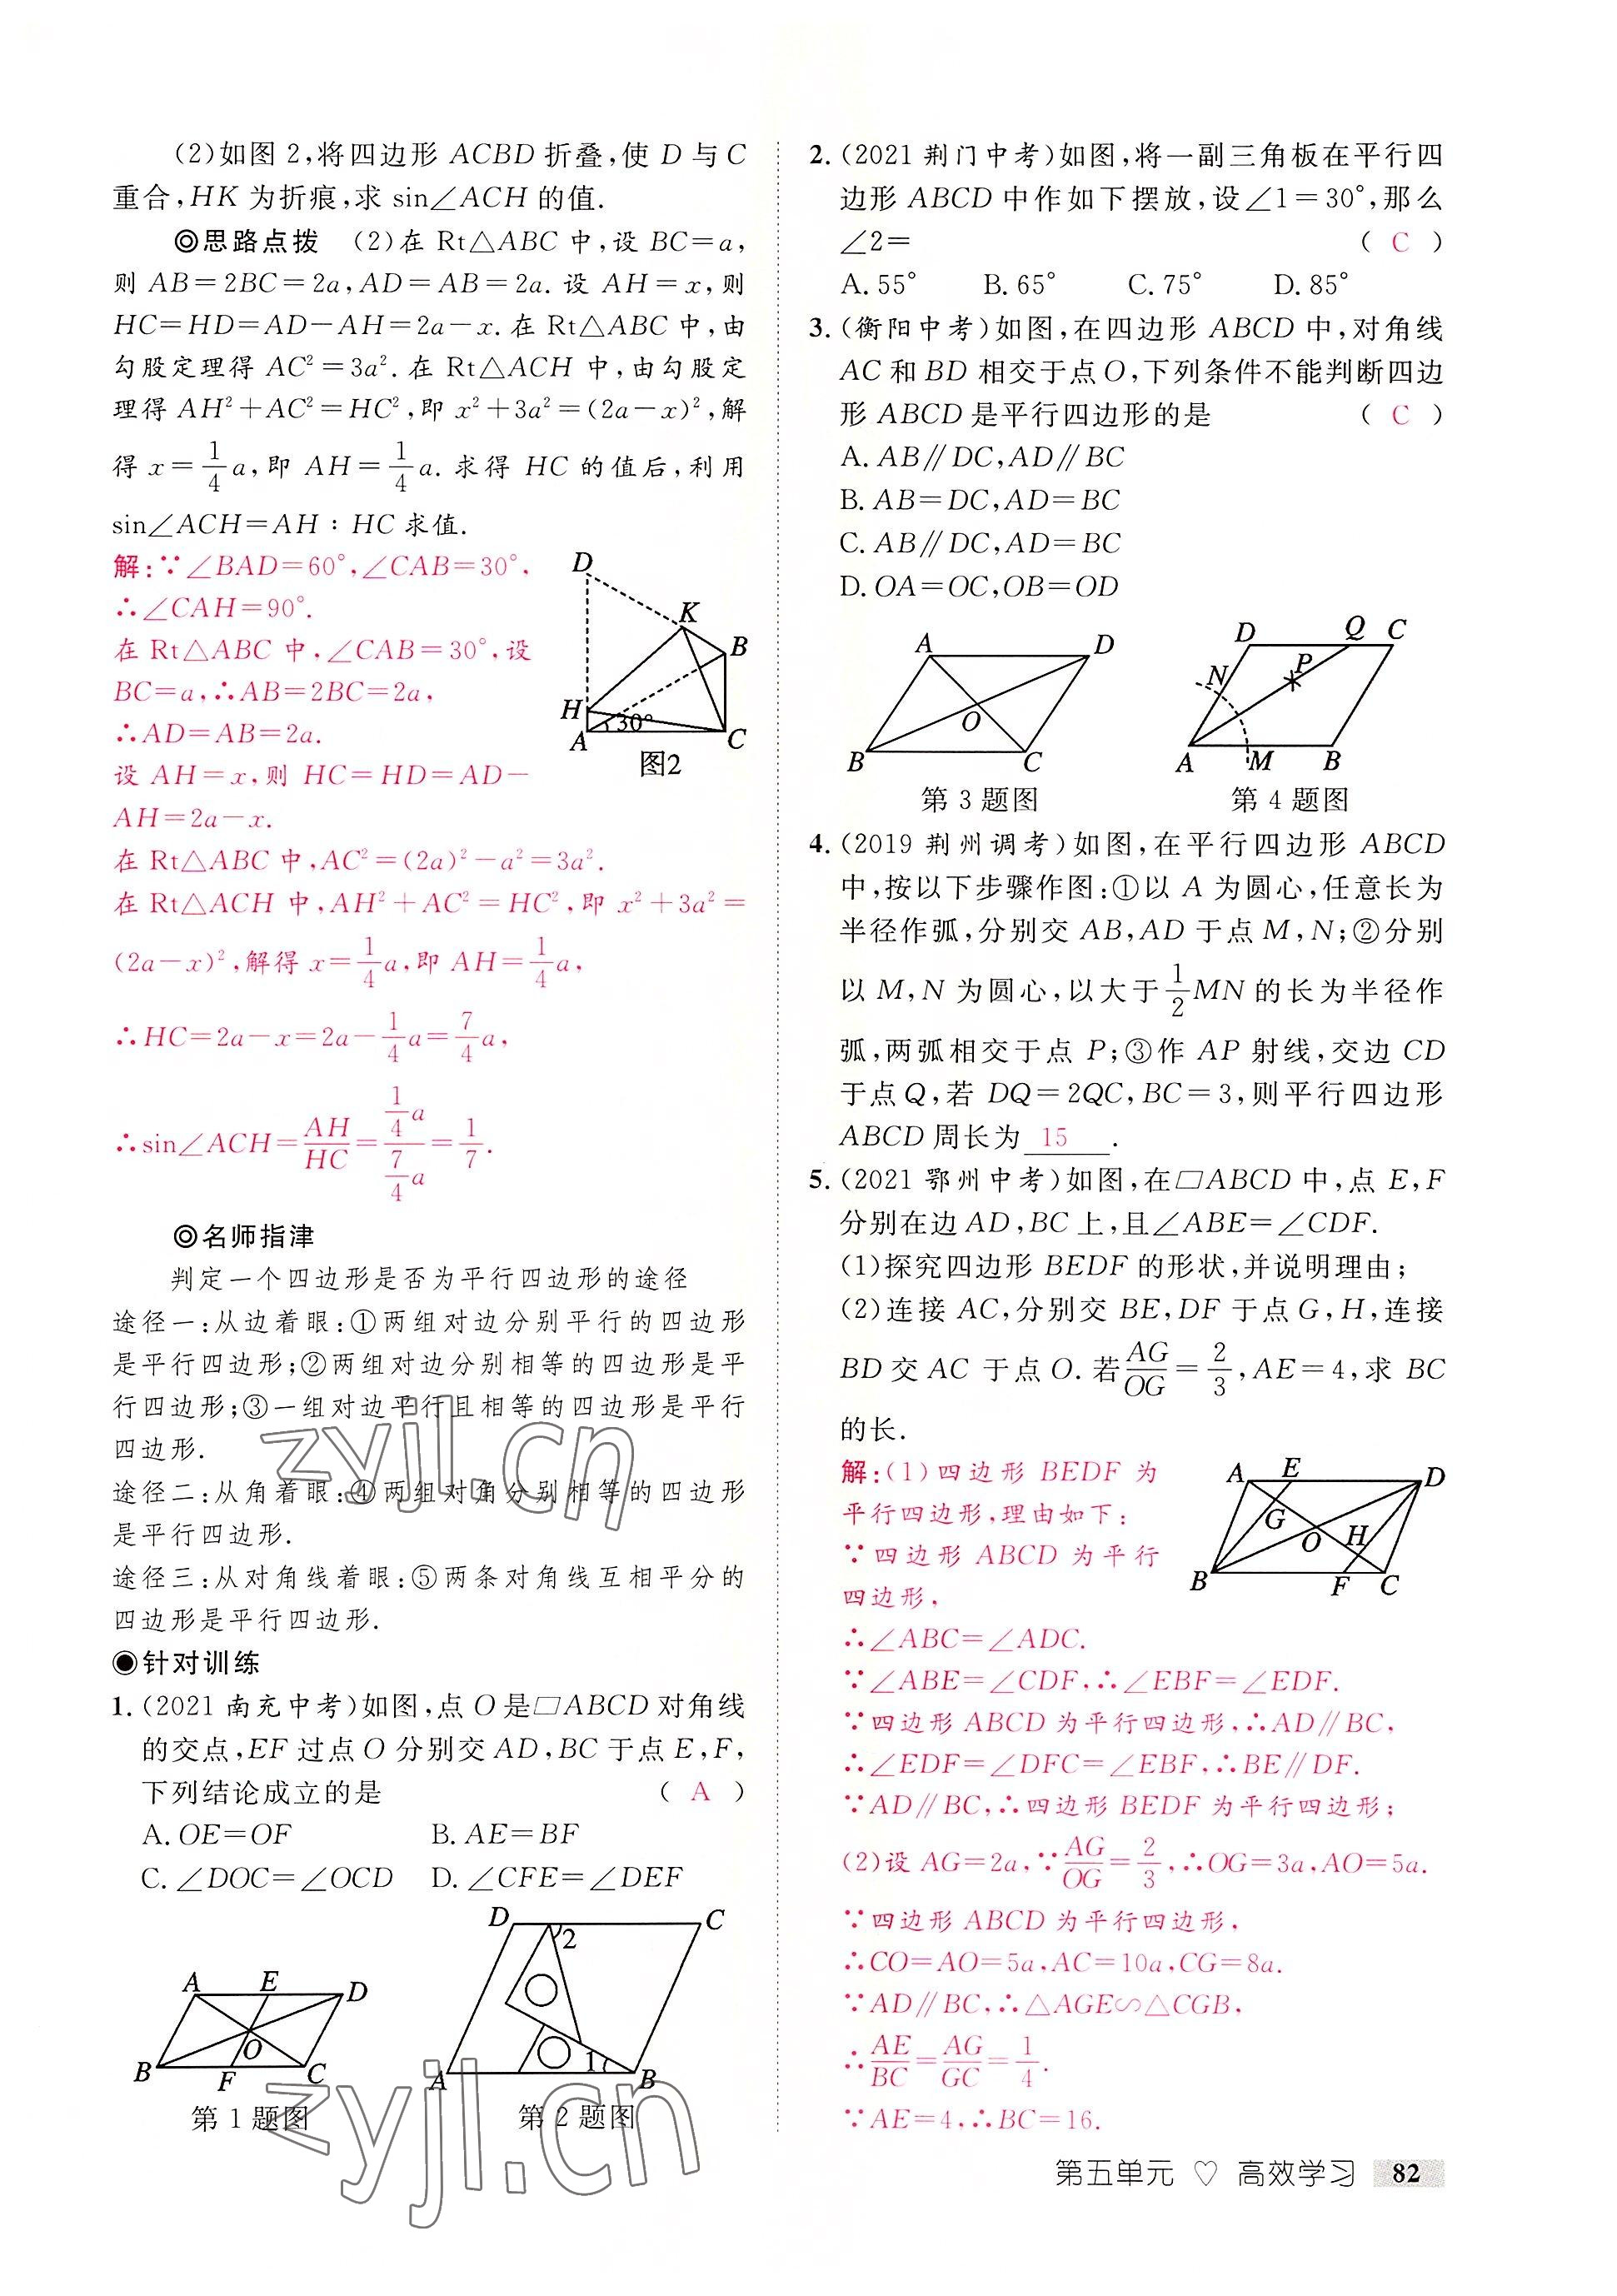 (2)如图2,将四边形ACBD折叠,使D与C
重合,HK为折痕,求sin∠ACH的值.
◎思路点拨 (2)在Rt△ABC中,设BC=a,
则AB=2BC=2a,AD=AB=2a.设AH=x,则
HC=HD=AD-AH=2a-x.在Rt△ABC中,由
勾股定理得AC²=3a².在Rt△ACH中,由勾股定
理得AH²+AC²=HC²,即x²+3a²=(2a-x)²,解
得x=1/4a,即AH=1/4a.求得HC的值后,利用
sin∠ACH=AH∶HC求值.
解:∵∠BAD=60°,∠CAB=30°,
∴∠CAH=90°.
在Rt△ABC中,∠CAB=30°,设
BC=a,∴AB=2BC=2a,
∴AD=AB=2a.
设AH=x,则HC=HD=AD-
AH=2a-x.
D
K
B
H
30°
A
C
图2
在Rt△ABC中,AC²=(2a)²-a²=3a².
在Rt△ACH中,AH²+AC²=HC²,即x²+3a²=
(2a-x)²,解得x=1/4a,即AH=1/4a,
∴HC=2a-x=2a-1/4a=7/4a,
∴sin∠ACH=AH/HC=(1/4a)/(7/4a)=1/7.
◎名师指津
判定一个四边形是否为平行四边形的途径
途径一:从边着眼:①两组对边分别平行的四边形
是平行四边形;②两组对边分别相等的四边形是平
行四边形;③一组对边平行且相等的四边形是平行
四边形.
途径二:从角着眼:④两组对角分别相等的四边形
是平行四边形.
途径三:从对角线着眼:⑤两条对角线互相平分的
四边形是平行四边形.
◉针对训练
1.(2021南充中考)如图,点O是▱ABCD对角线
的交点,EF过点O分别交AD,BC于点E,F,
下列结论成立的是 ( A )
A.OE=OF B.AE=BF
C.∠DOC=∠OCD D.∠CFE=∠DEF
A E D
O
B F C
第1题图
D C
2
1
A B
第2题图
2.(2021荆门中考)如图,将一副三角板在平行四
边形ABCD中作如下摆放,设∠1=30°,那么
∠2= ( C )
A.55° B.65° C.75° D.85°
3.(衡阳中考)如图,在四边形ABCD中,对角线
AC和BD相交于点O,下列条件不能判断四边
形ABCD是平行四边形的是 ( C )
A.AB∥DC,AD∥BC
B.AB=DC,AD=BC
C.AB∥DC,AD=BC
D.OA=OC,OB=OD
A D
O
B C
第3题图
D Q C
N P
A M B
第4题图
4.(2019荆州调考)如图,在平行四边形ABCD
中,按以下步骤作图:①以A为圆心,任意长为
半径作弧,分别交AB,AD于点M,N;②分别
以M,N为圆心,以大于1/2MN的长为半径作
弧,两弧相交于点P;③作AP射线,交边CD
于点Q,若DQ=2QC,BC=3,则平行四边形
ABCD周长为 15 .
5.(2021鄂州中考)如图,在▱ABCD中,点E,F
分别在边AD,BC上,且∠ABE=∠CDF.
(1)探究四边形BEDF的形状,并说明理由;
(2)连接AC,分别交BE,DF于点G,H,连接
BD交AC于点O.若AG/OG=2/3,AE=4,求BC
的长.
解:(1)四边形BEDF为
平行四边形,理由如下:
∵四边形ABCD为平行
四边形,
A E D
G O H
B F C
∴∠ABC=∠ADC.
∵∠ABE=∠CDF,∴∠EBF=∠EDF.
∵四边形ABCD为平行四边形,∴AD∥BC,
∴∠EDF=∠DFC=∠EBF,∴BE∥DF.
∵AD∥BC,∴四边形BEDF为平行四边形;
(2)设AG=2a,∵AG/OG=2/3,∴OG=3a,AO=5a.
∵四边形ABCD为平行四边形,
∴CO=AO=5a,AC=10a,CG=8a.
∵AD∥BC,∴△AGE∽△CGB,
∴AE/BC=AG/GC=1/4.
∵AE=4,∴BC=16.
第五单元 ♡ 高效学习 82
zyjl.cn
zyjl.cn